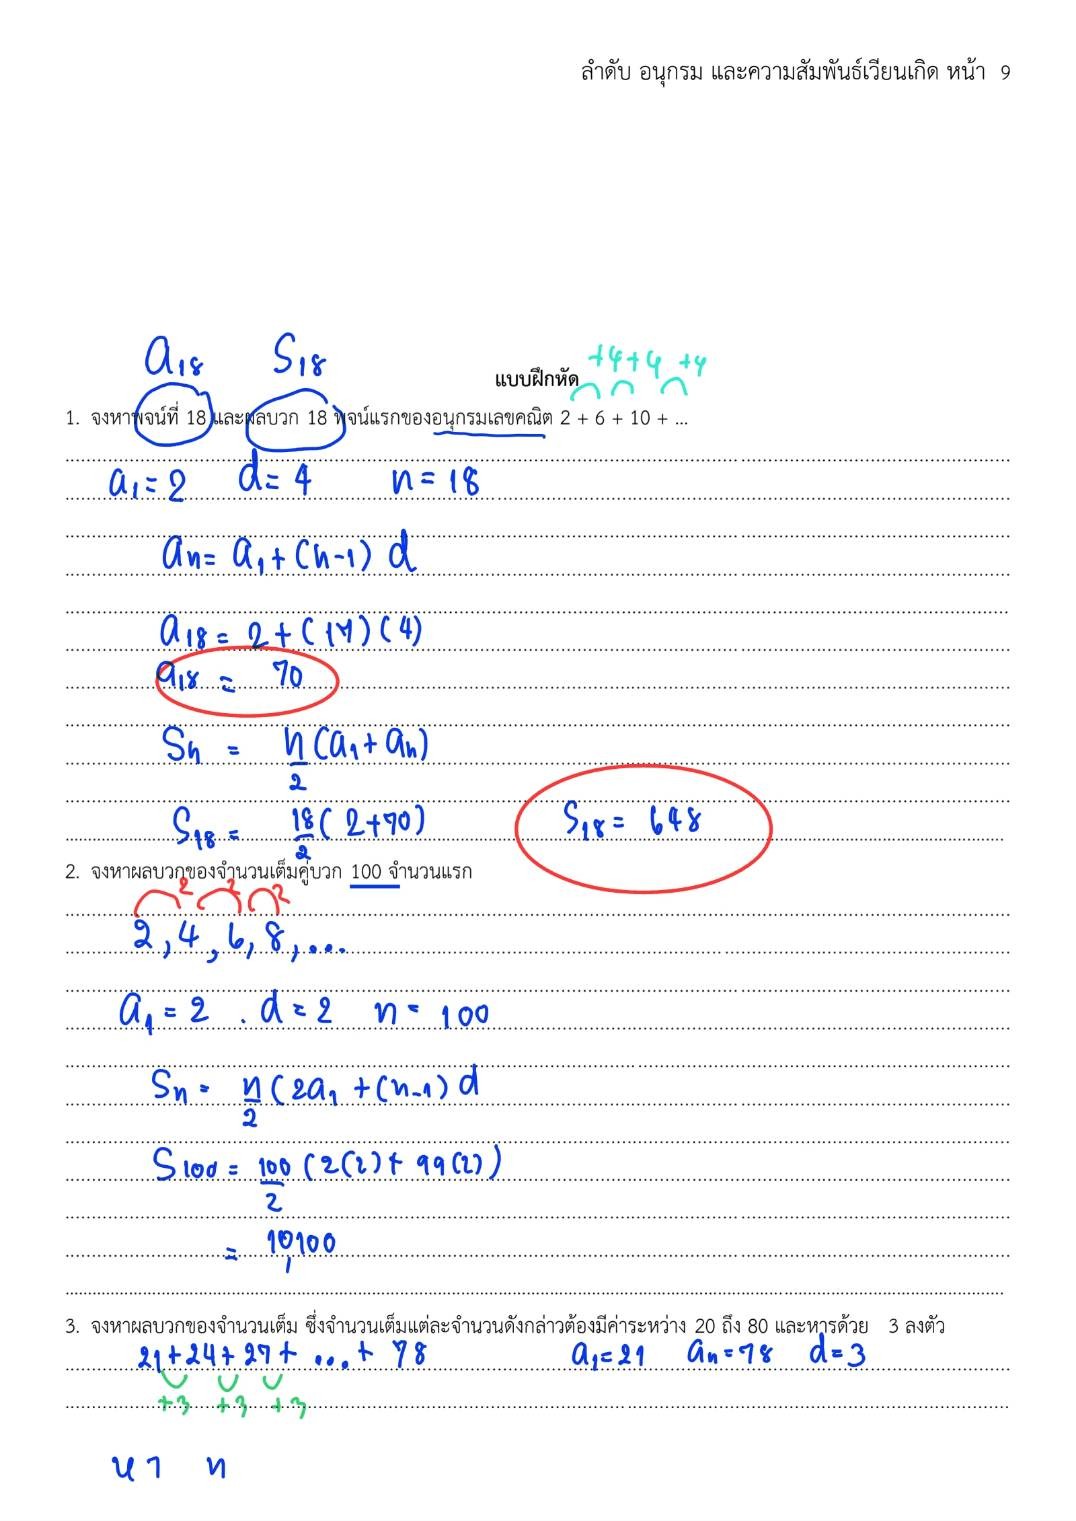 ลำดับ อนุกรม และความสัมพันธ์เวียนเกิด หน้า 9
a18 S18
+4 +4 +4
แบบฝึกหัด
1. จงหาพจน์ที่ 18 และผลบวก 18 พจน์แรกของอนุกรมเลขคณิต 2 + 6 + 10 + ...
a1 = 2 d = 4 n = 18
an = a1 + (n-1) d
a18 = 2 + (17)(4)
a18 = 70
Sn = n/2 (a1 + an)
S18 = 18/2 (2+70) S18 = 648
2. จงหาผลบวกของจำนวนเต็มคู่บวก 100 จำนวนแรก
2 2 2
2, 4, 6, 8, ...
a1 = 2 . d = 2 n = 100
Sn = n/2 (2a1 + (n-1) d
S100 = 100/2 (2(2) + 99(2))
= 10,100
3. จงหาผลบวกของจำนวนเต็ม ซึ่งจำนวนเต็มแต่ละจำนวนดังกล่าวต้องมีค่าระหว่าง 20 ถึง 80 และหารด้วย 3 ลงตัว
21 + 24 + 27 + ... + 78 a1 = 21 an = 78 d = 3
+3 +3 +3
หา n